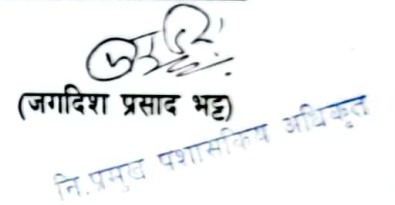 (जगदिश प्रसाद भट्ट)
नि.प्रमुख प्रशासकिय अधिकृत